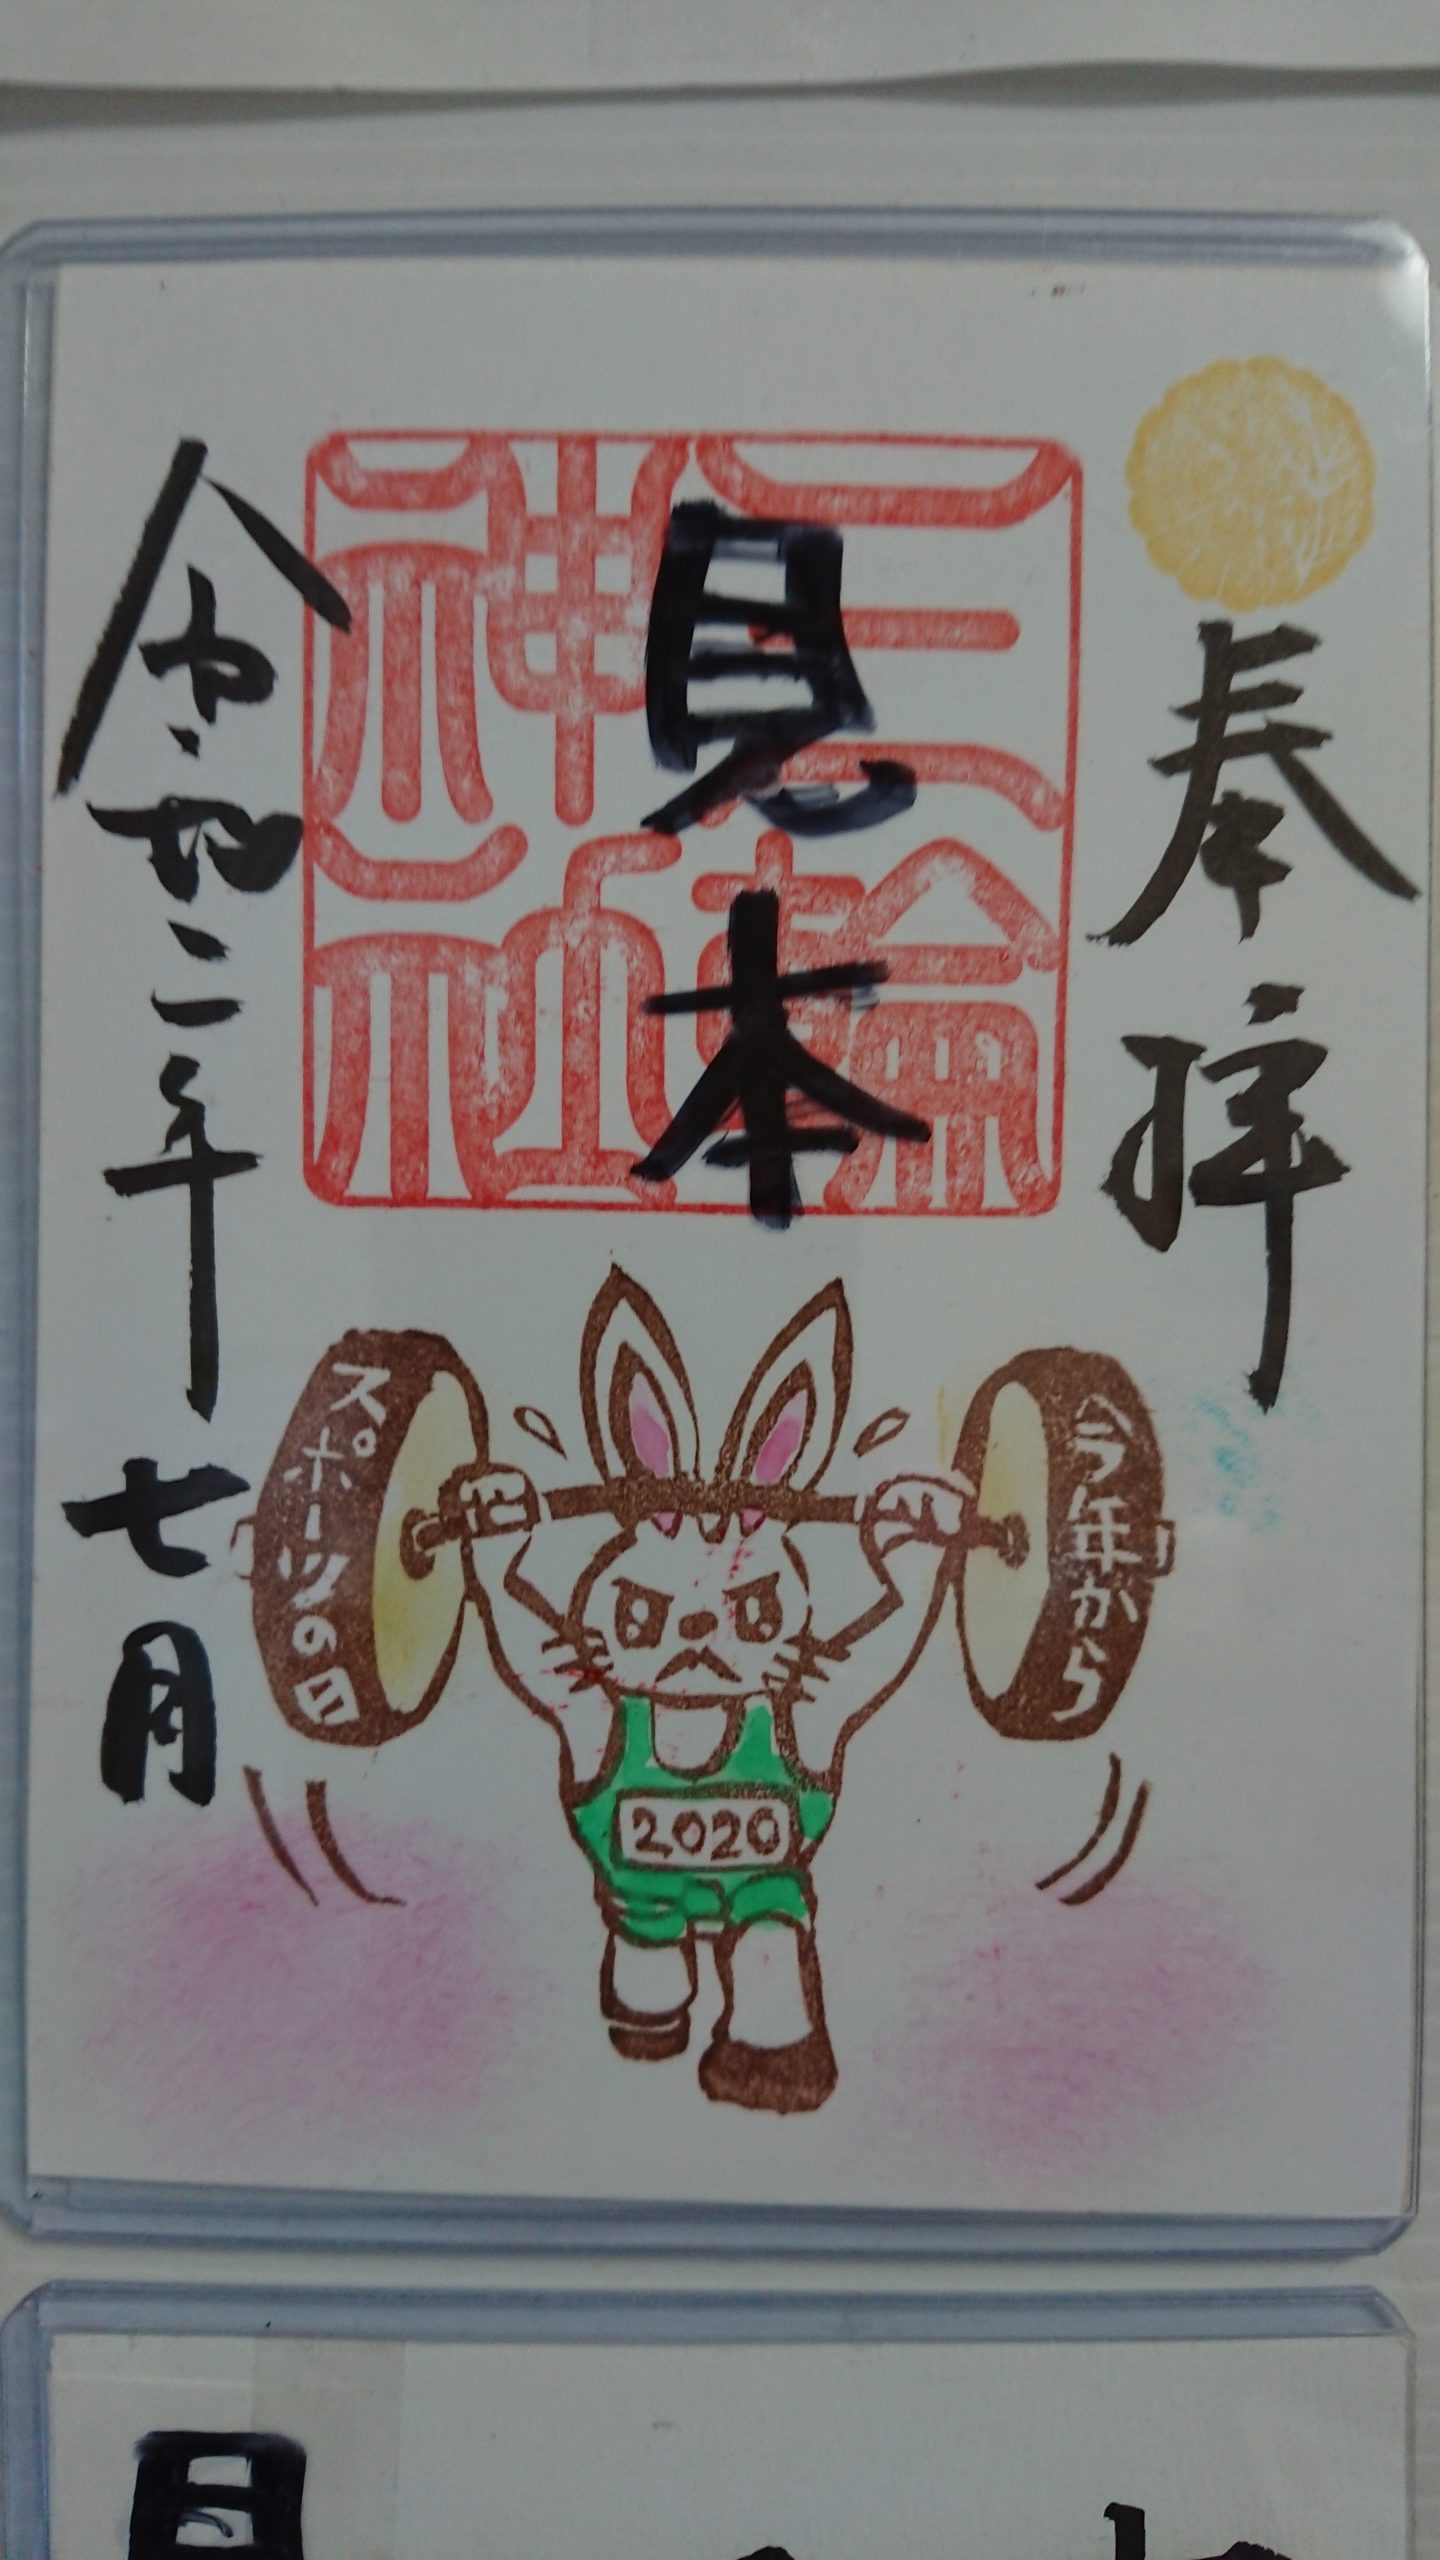 奉拝
三輪
神社
見本
令和二年七月
今年から
スポーツの日
2020
見